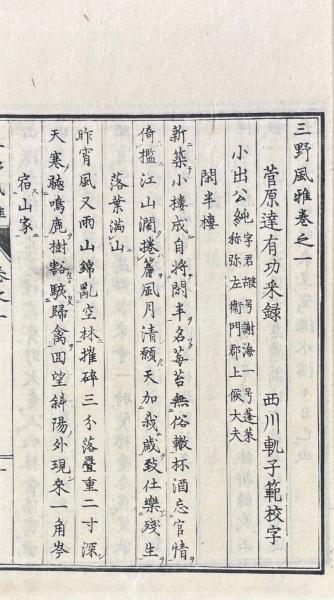 三野風雅卷之一
菅原達有功采録 西川軏子範校字
小出公純 字君嘏号謝海一号蓬萊 称弥左衛門郡上候大夫
閑半樓
新築小樓成自將閑半名莓苔無俗轍杯酒忘官情
倚檻江山濶捲簾風月清願天加我歳致仕樂殘生
落葉満山
昨宵風又雨山錦亂空林摧碎三分落疊重二寸深
天寒聴鳴鹿樹豁駭歸禽囬望斜陽外現来一角岑
宿山家